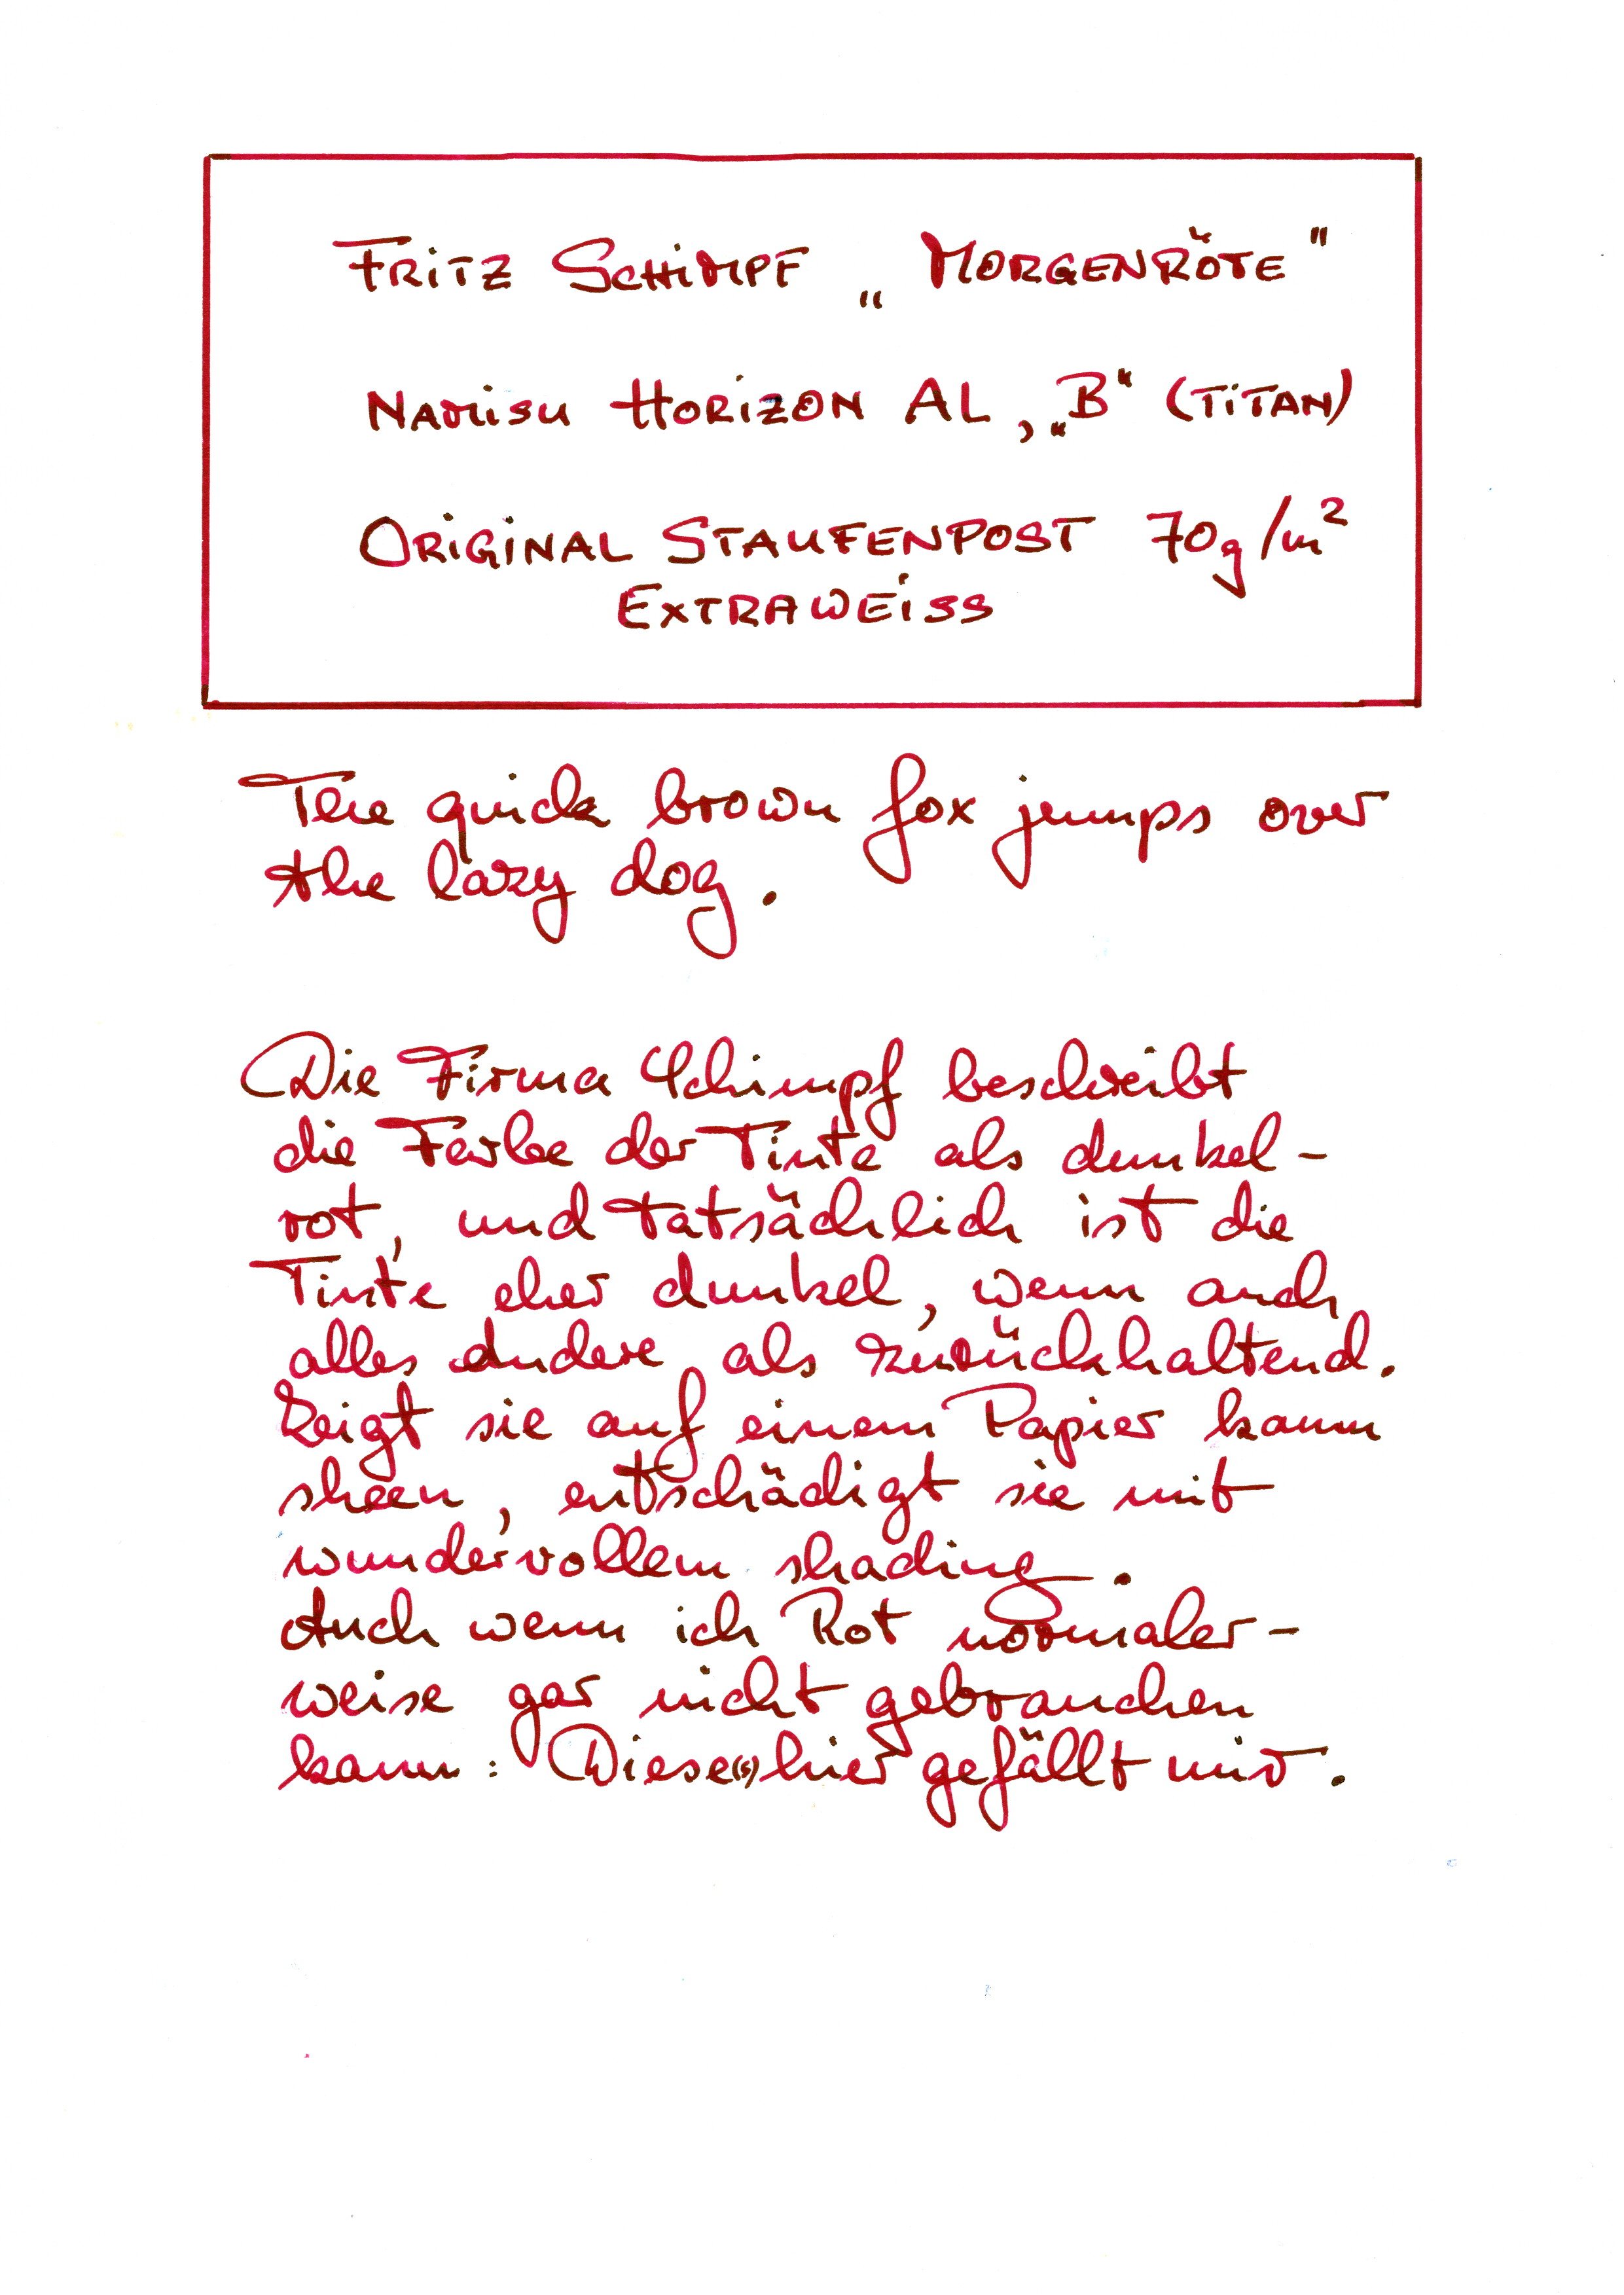 Fritz Schimpf „Morgenröte"
Namisu Horizon AL, „B“ (Titan)
Original Staufenpost 70g/m²
Extraweiss
The quick brown fox jumps over
the lazy dog.
Die Firma Schimpf beschreibt
die Farbe der Tinte als dunkel-
rot, und tatsächlich ist die
Tinte eher dunkel, wenn auch
alles andere als zurückhaltend.
Zeigt sie auf einem Papier kaum
sheen, entschädigt sie mit
wundervollem shading.
Auch wenn ich Rot normaler-
weise gar nicht gebrauchen
kann: Diese(s) hier gefällt mir.